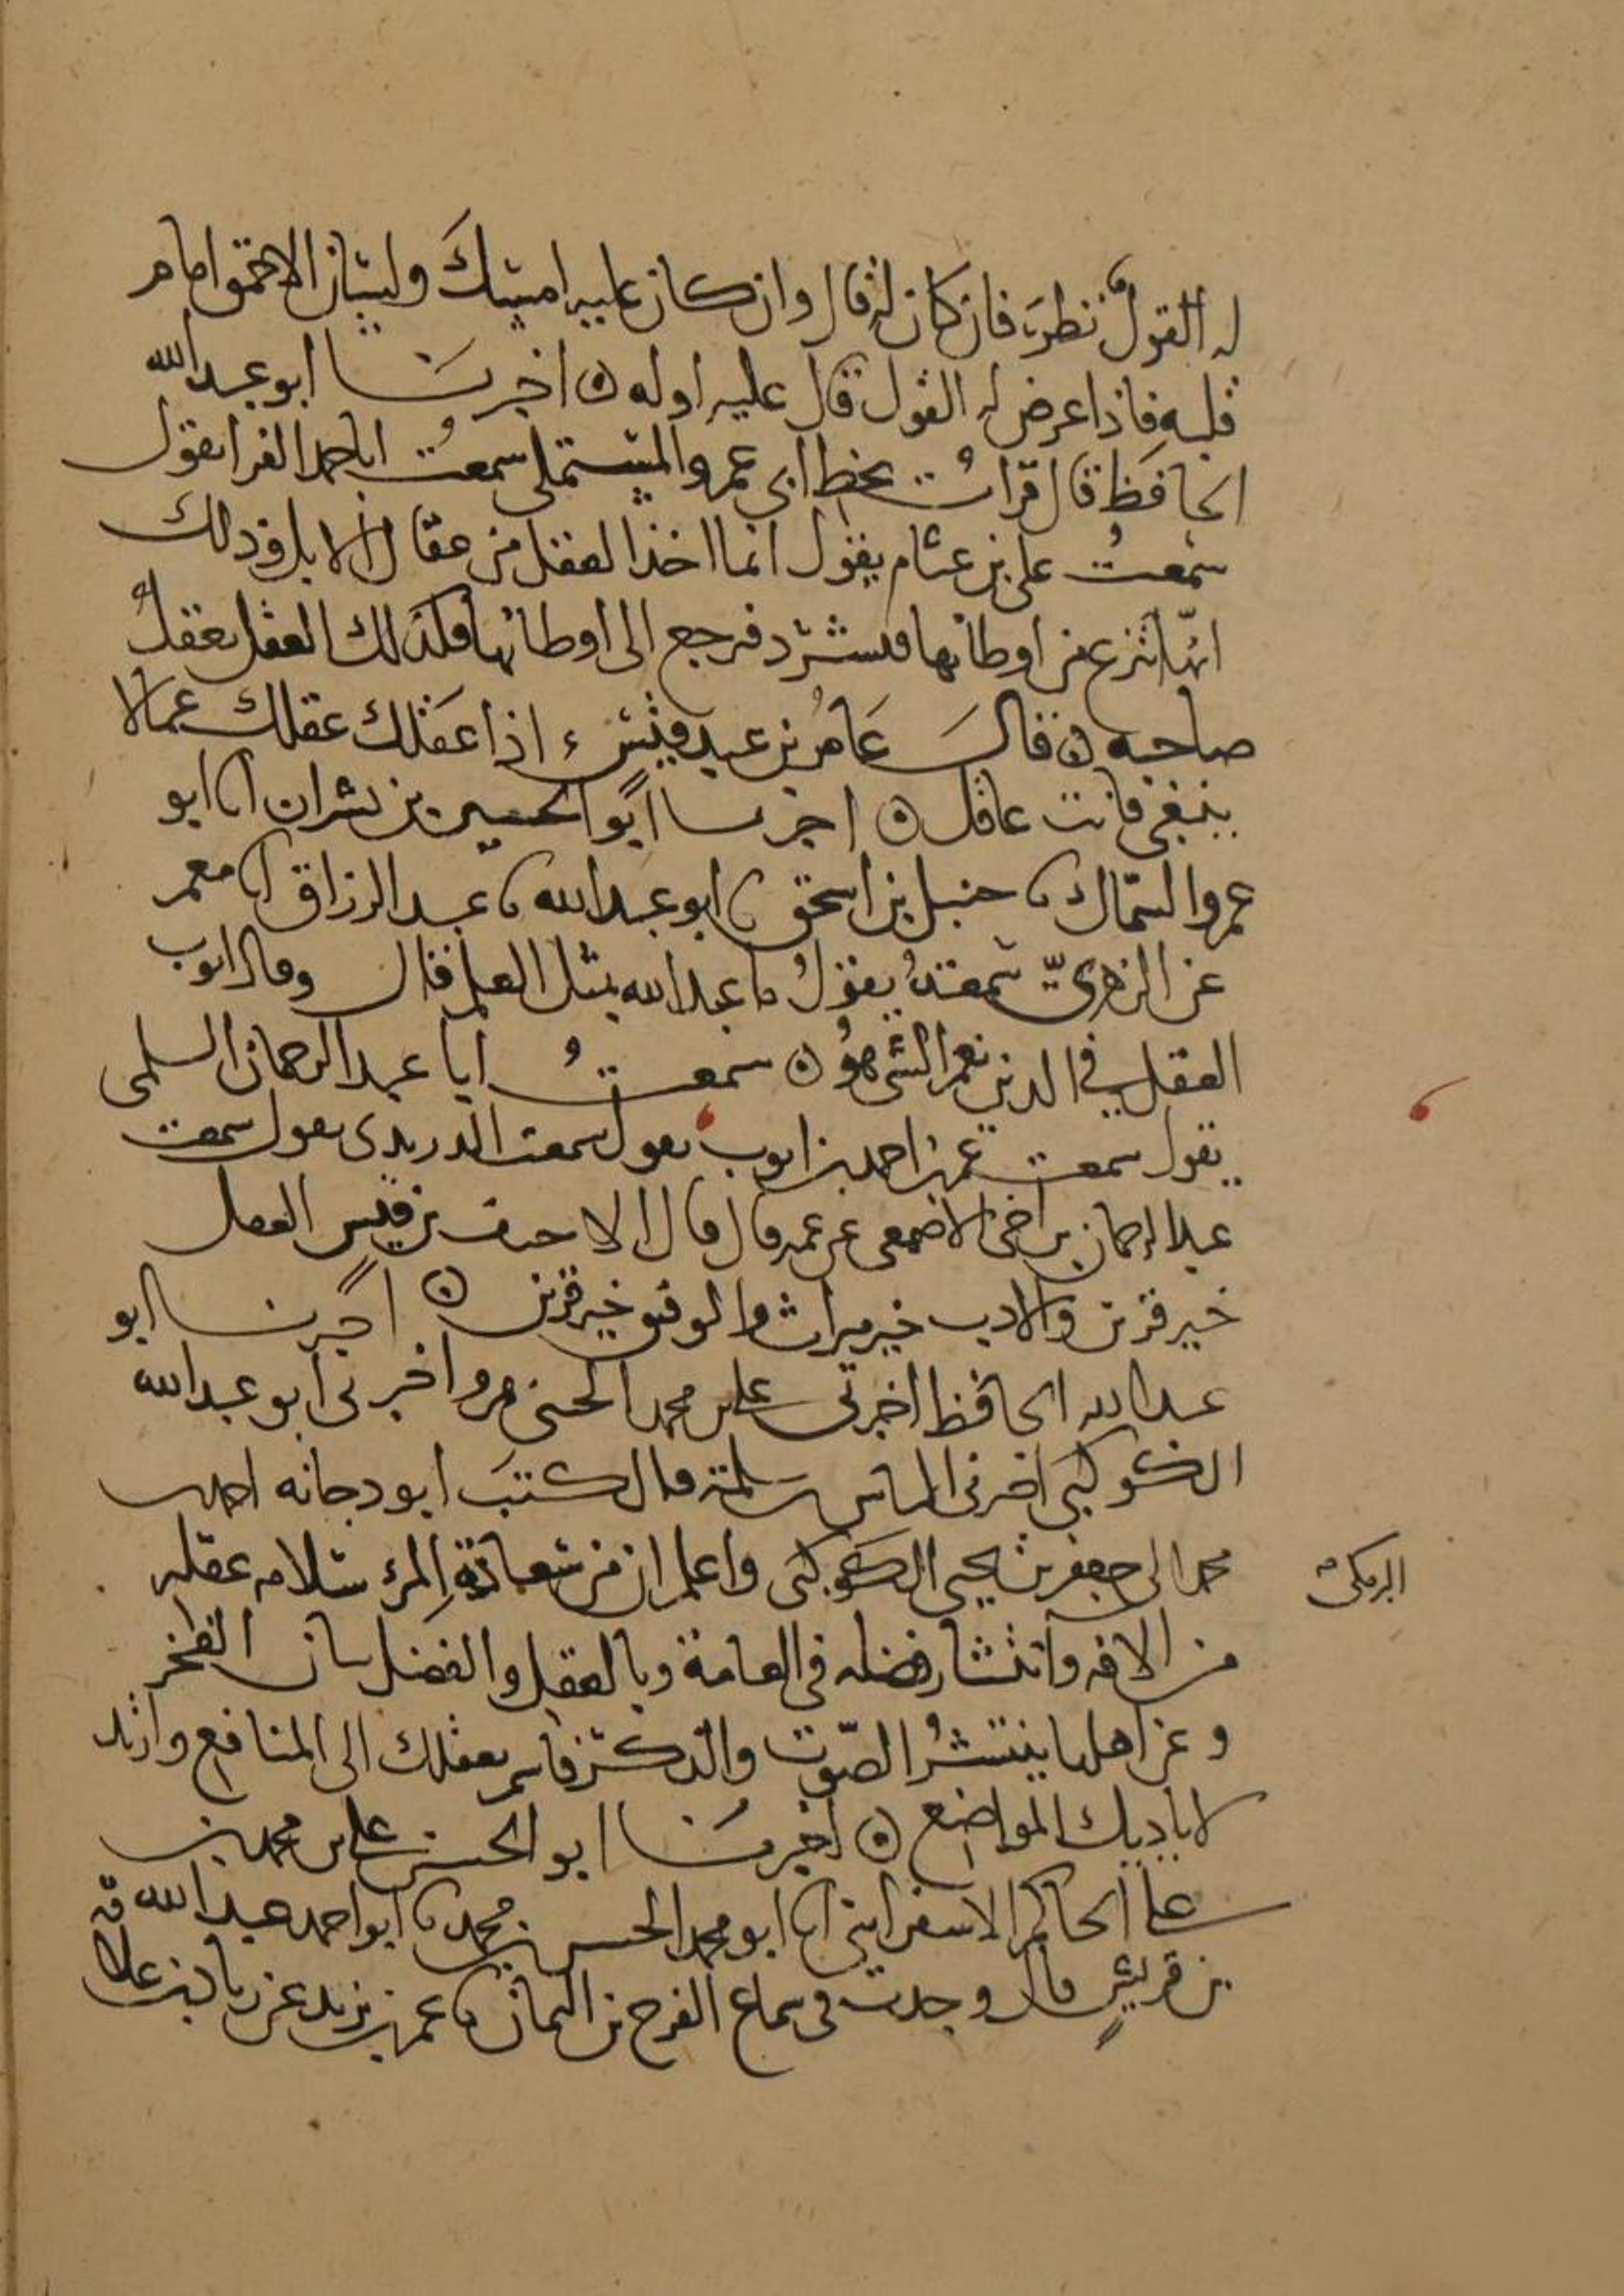 له القول نظر فان كان له قال وان كان عليه امسك ولسان الاحمق امام
قلبه فاذا عرض له القول قال عليه او له ه اخبرنا ابو عبد الله
الحافظ قال قرأت بخط ابي عمرو المستملي سمعت ابا احمد الفرا يقول
سمعت علي بن عثام يقول انما اخذ العقل من عقال الابل وذلك
انها تنزع عن اوطانها فتشرد فترجع الى اوطانها فكذلك العقل يعقل
صاحبه ه قال عامر بن عبد قيس اذا عقلك عقلك عما لا
ينبغي فانت عاقل ه اخبرنا ابو الحسين بن بشران انا ابو
عمرو السماك نا حنبل بن اسحق نا ابو عبد الله نا عبد الرزاق انا معمر
عن الزهري سمعته يقول ما عبد الله بمثل العلم قال وقال ايوب
العقل في الدين نعم الشي هو ه سمعت ابا عبد الرحمان السلمي
يقول سمعت عمر بن احمد بن ايوب يقول سمعت الدريدي يقول سمعت
عبد الرحمان بن اخي الاصمعي عن عمه قال قال الاحنف بن قيس العقل
خير قرين والادب خير ميراث والتوفيق خير قرين ه اخبرنا ابو
عبد الله الحافظ اخبرني علي بن محمد الحسني بمرو اخبرني ابو عبد الله
الكوكبي اخبرني الياس بن سلمة قال كتب ابو دجانه احمد بن
محمد الى جعفر بن يحيى الكوكبي واعلم ان من سعادة المرء سلامه عقله
البرمكي
من الافه وانتشار فضله في العامة وبالعقل والفضل الفخر
وعن اهلها ينتشر الصوت والذكر بعقلك الى المنافع وارتد
لاياديك المواضع ه اخبرنا ابو الحسن علي بن محمد بن
علي الحاكم الاسفرايني انا ابو محمد الحسن بن محمد نا ابو احمد عبد الله
بن قريش قال وجدت في سماع الفرج بن اليمان نا عمر بن يزيد عن زياد بن علاقه